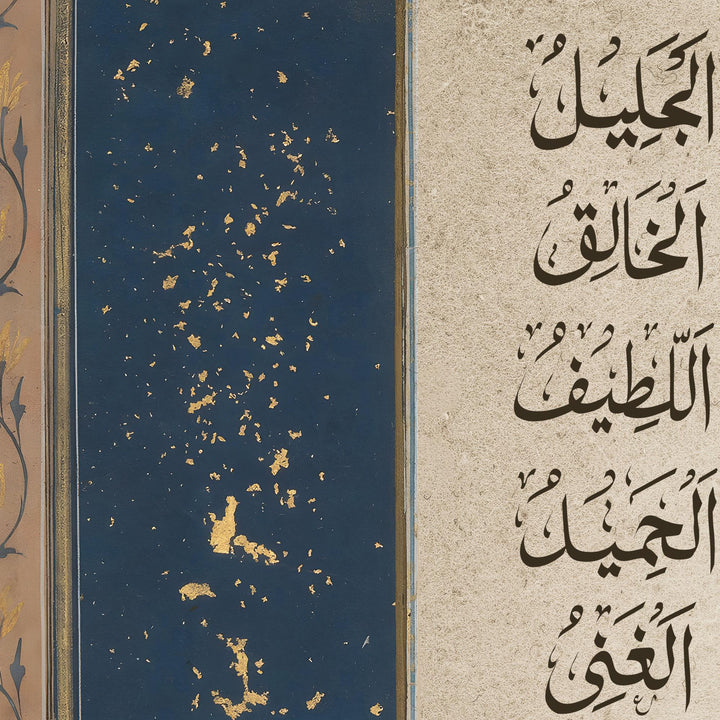 اَلْجَلِيلُ
اَلْخَالِقُ
اَللَّطِيفُ
اَلْجَمِيلُ
اَلْغَنِيُ